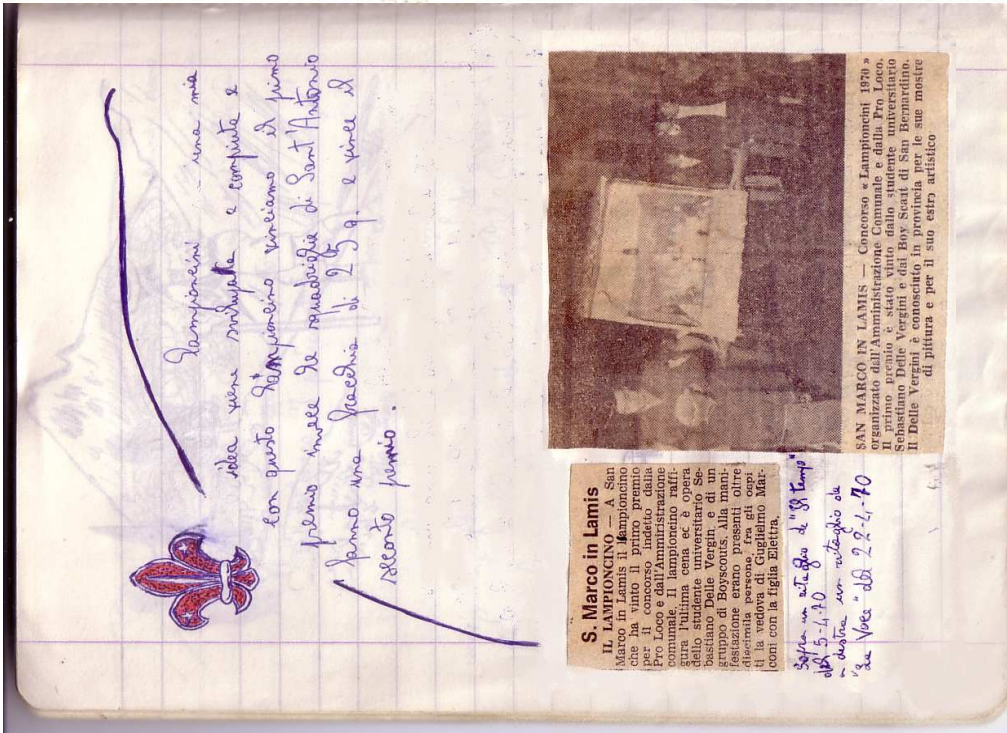 Lampioncini una mia
idea viene sviluppata e compiuta e
con questo lampioncino vinciamo il primo
premio invece le squadriglie di Sant'Antonio
fanno una fracchia di 25 q. e vince il
secondo premio.
S. Marco in Lamis
IL LAMPIONCINO — A San
Marco in Lamis il lampioncino
che ha vinto il primo premio
per il concorso indetto dalla
Pro Loco e dall'Amministrazione
comunale. Il lampioncino raffi-
gura l'ultima cena ec è opera
dello student universitario Se-
bastiano Delle Vergin, e di un
gruppo di Boyscouts. Alla mani-
festazione erano presenti oltre
diecimila persone, fra gli ospi
ti la vedova di Guglielmo Mar-
coni con la figlia Elettra.
Sopra un ritaglio di "Il tempo"
del 5-4-70
a destra un ritaglio de
"La Voce del 22-4-70
SAN MARCO IN LAMIS — Concorso « Lampioncini 1970 »
organizzato dall'Amministrazione Comunale e dalla Pro Loco.
Il primo premio è stato vinto dallo studente universitario
Sebastiano Delle Vergini e dai Boy Scaut di San Bernardino.
Il Delle Vergini è conosciuto in provincia per le sue mostre
di pittura e per il suo estro artistico